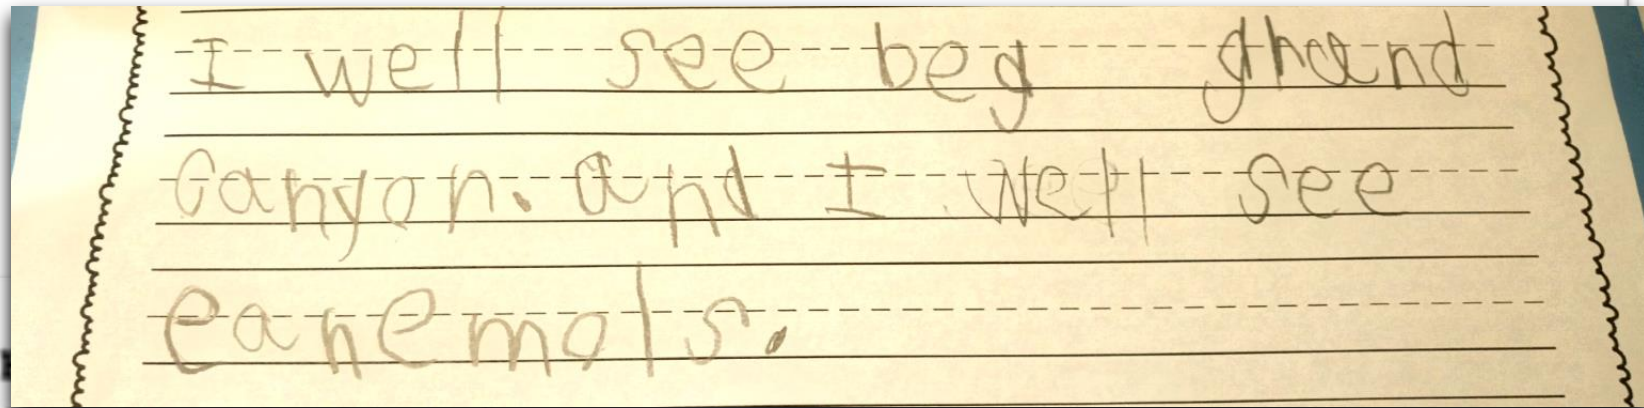 I well see beg ghand
Canyon. and I well see
eanemols.